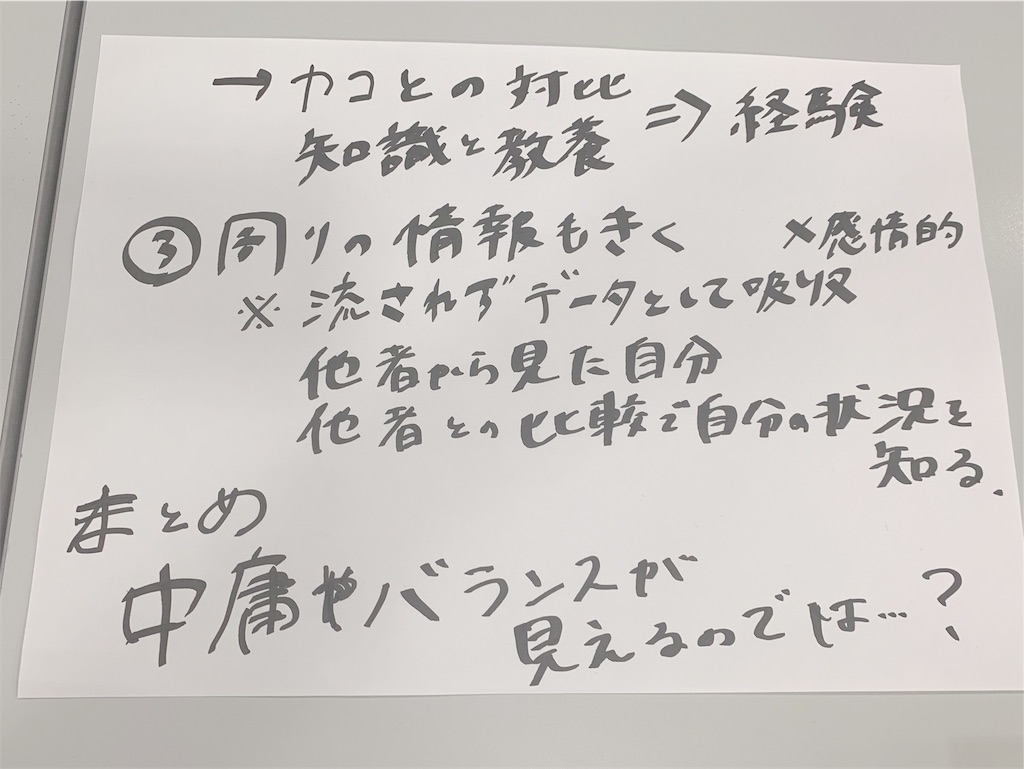 →カコとの対比
知識と教養 ⇒ 経験
③周りの情報もきく ×感情的
※流されずデータとして吸収
他者から見た自分
他者との比較で自分の状況を
知る.
まとめ
中庸やバランスが
見えるのでは…?